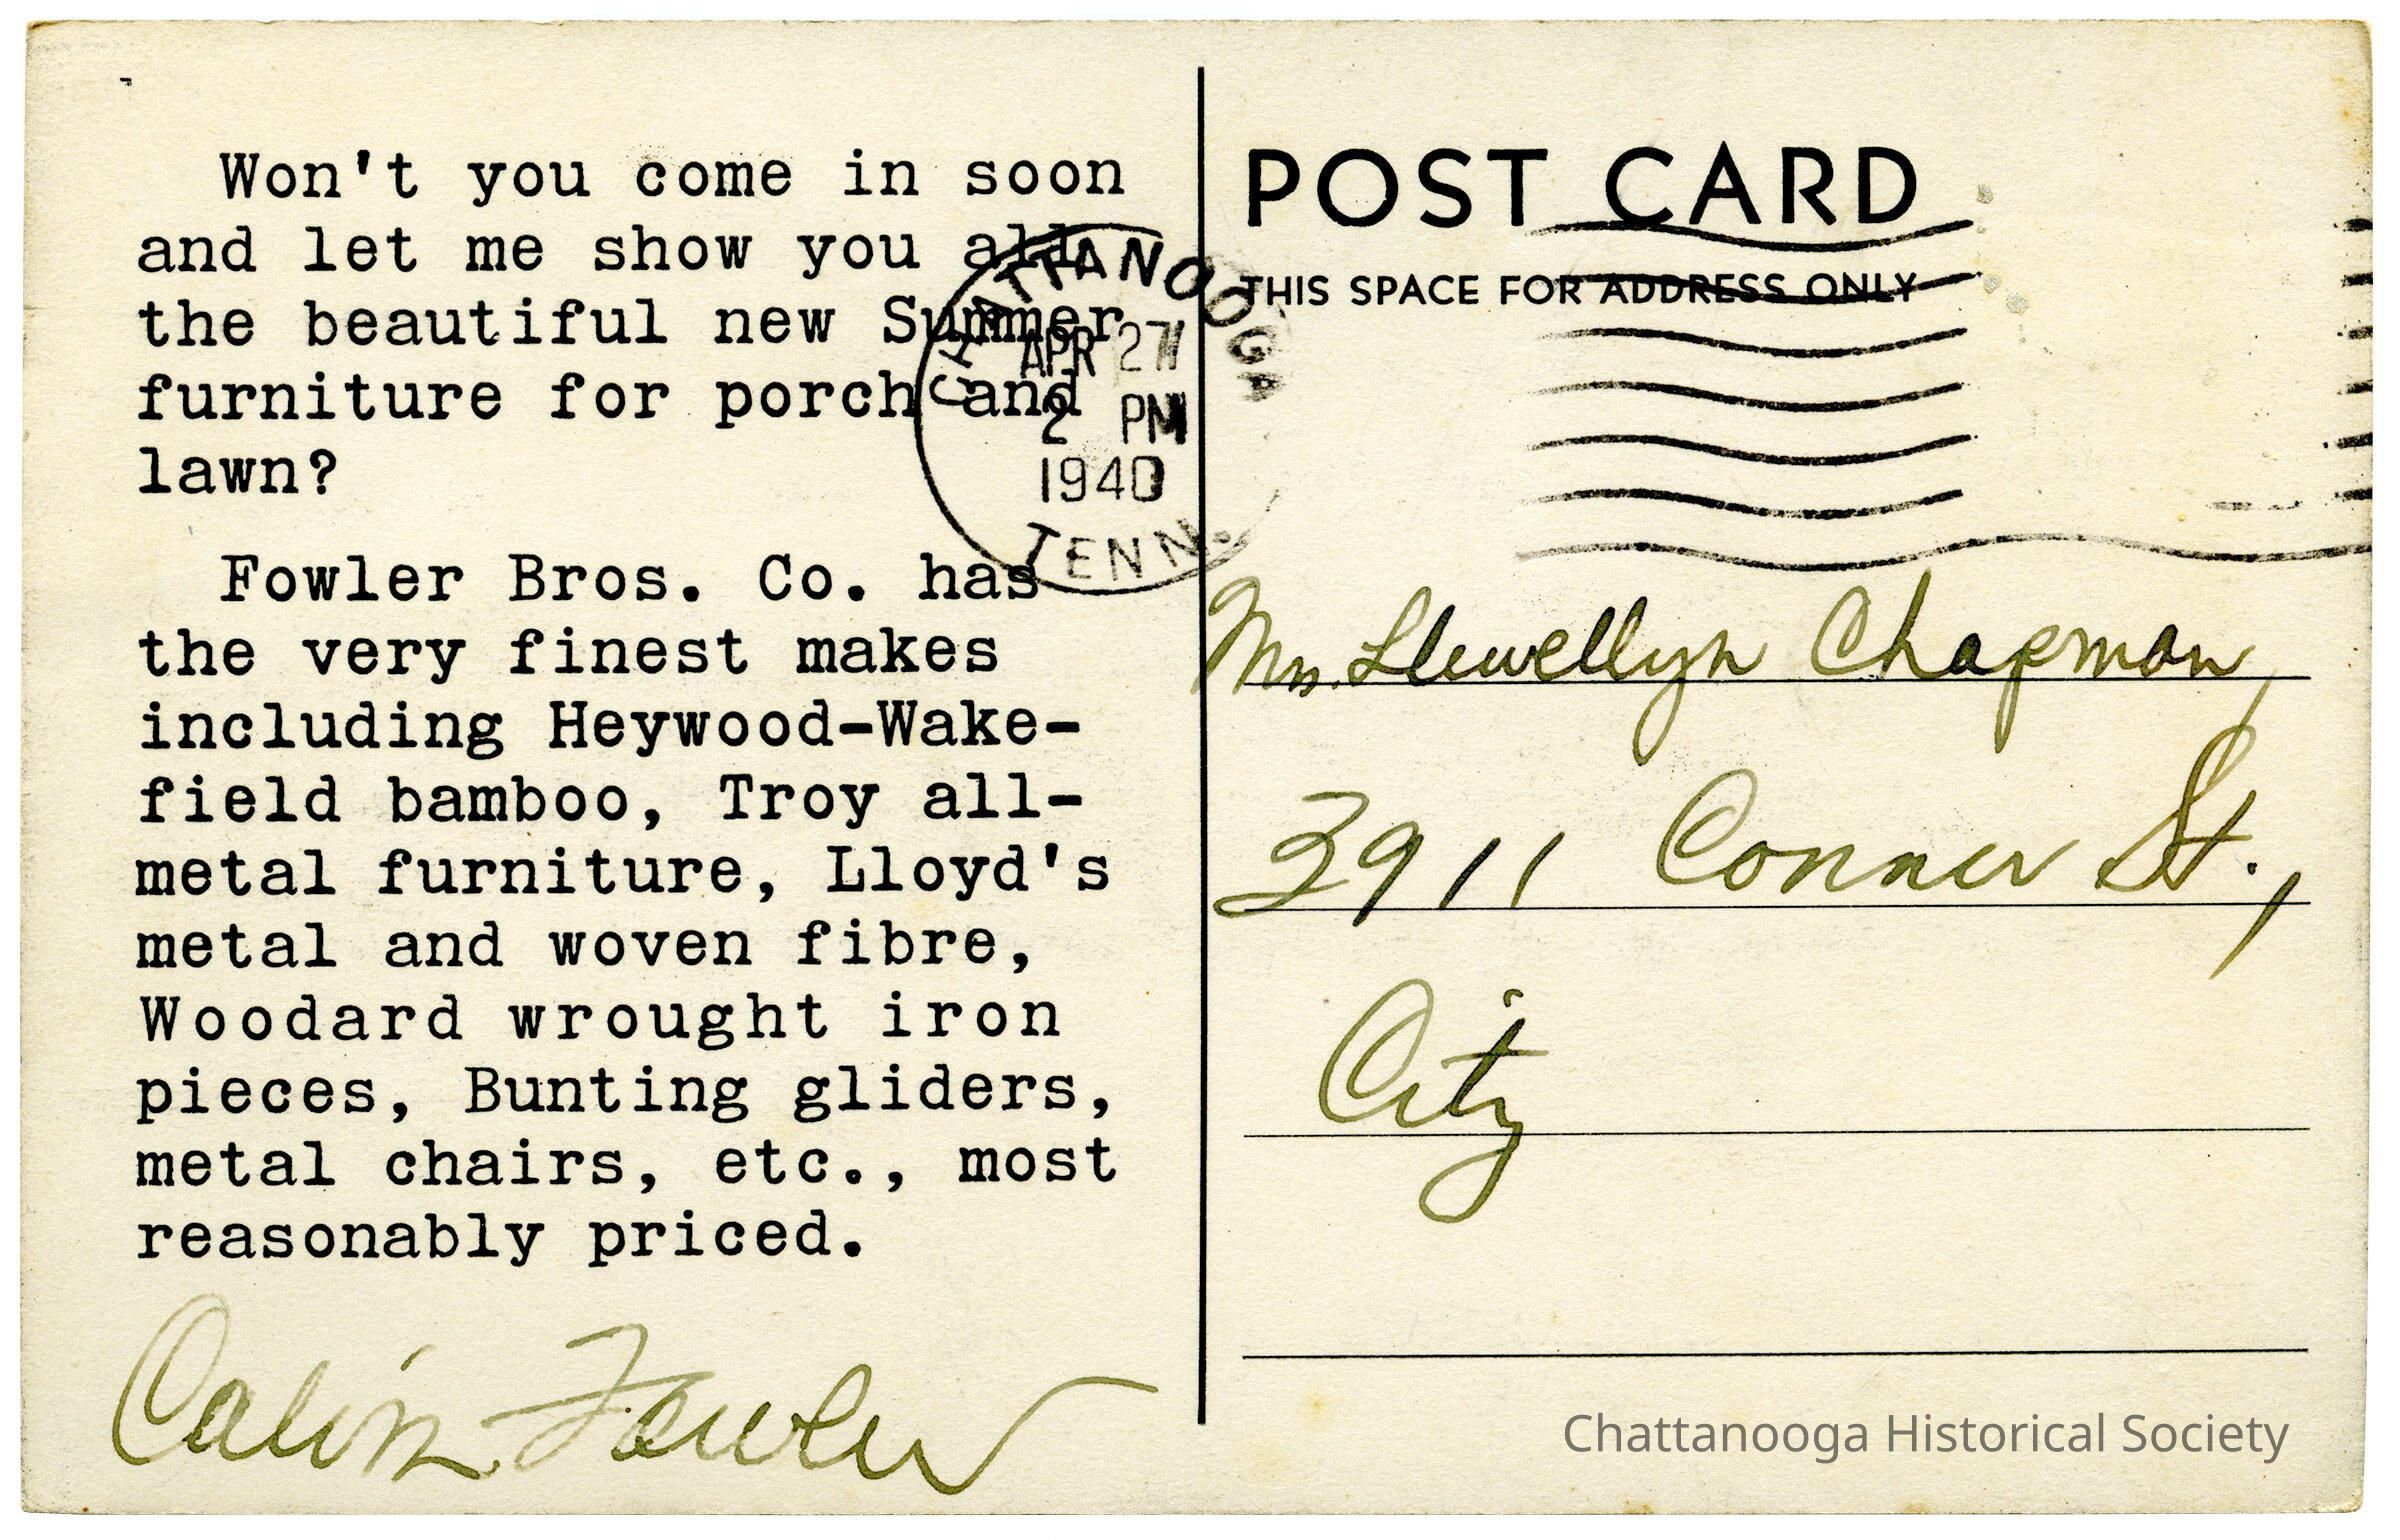 Won't you come in soon
and let me show you all
the beautiful new Summer
furniture for porch and
lawn?
Fowler Bros. Co. has
the very finest makes
including Heywood-Wake-
field bamboo, Troy all-
metal furniture, Lloyd's
metal and woven fibre,
Woodard wrought iron
pieces, Bunting gliders,
metal chairs, etc., most
reasonably priced.
Calvin Fowler
CHATTANOOGA
APR 27
2 PM
1940
TENN.
POST CARD
THIS SPACE FOR ADDRESS ONLY
Mrs. Llewellyn Chapman,
3911 Conner St.,
City
Chattanooga Historical Society